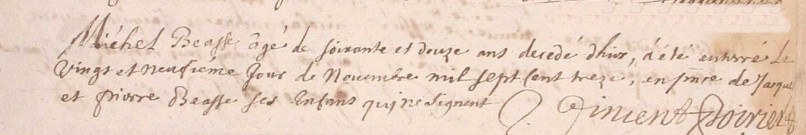 Michel Beasse âgé de soixante et douze ans decedé d'hier, a été enterré le
vingt et neufiéme jour de Novembre mil sept cent treze, en pnce de Jacque
et pierre Beasse ses Enfans qui ne signent Vincent Poirier